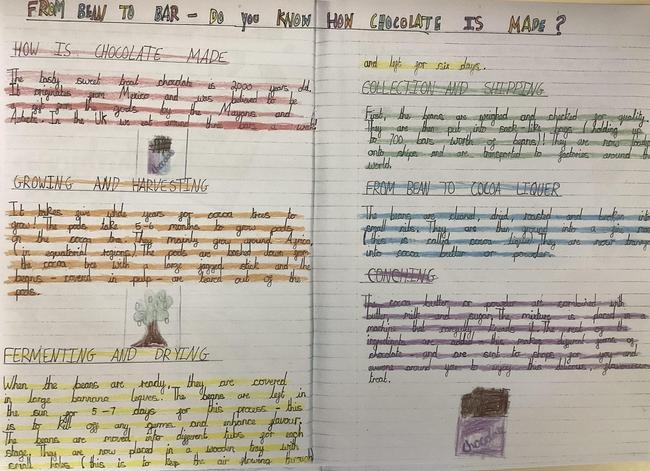 FROM BEAN TO BAR - DO YOU KNOW HOW CHOCOLATE IS MADE?
HOW IS CHOCOLATE MADE
The tasty sweet treat chocolate is 2000 years old.
It originates from Mexico and was believed to be
a gift from the gods by the Mayans and
In the UK we eat around three bars a week
GROWING AND HARVESTING
It takes five years for cocoa trees to
grow! The pods take 5-6 months to grow pods
on the cocoa tree (they mainly grow around Africa,
in equatorial regions). The pods are down from
the cocoa tree with a large jagged stick and the
beans in pulp are out of the
pods.
FERMENTING AND DRYING
When the beans are ready, they are covered
in large bannana leaves. The beans are left in
the sun for 5-7 days for this process - this
is to kill off any germs and enhance flavour.
The beans are moved into different tubs for each
stage. They are now placed in a wooden tray with
small holes (this is to keep the air flowing through
and left for six days.
COLLECTION AND SHIPPING
First, the beans are weighed and checked for quality.
They are then put into sack like bags (holding up
to 700 bars worth of beans)! They are now loaded
onto ships and are transported to factories around the
world.
FROM BEAN TO COCOA LIQUER
The beans are cleaned, dried, roasted and broken into
small nibs. They are then ground into a
(this is called cocoa They are now
into cocoa butter or powder.
CONCHING
The cocoa butter or powder are combined with
milk and sugar. The mixture is placed in a
machine that it. The rest of the
are added this makes different of
chocolate and are sent to shops for you and
around you to enjoy this delicious,
treat.
chocolate